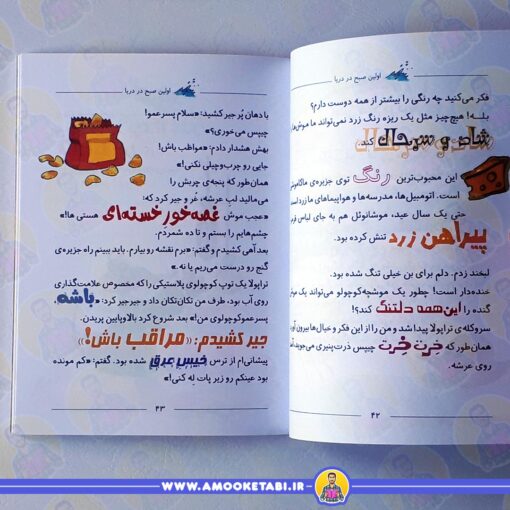 اولین صبح در دریا
فکر می‌کنید چه رنگی را بیشتر از همه دوست دارم؟
بلـه! هیچ‌چیز مثل یک ریزه رنگ زرد نمی‌تواند ما
شاد و سرحال کند.
این محبوب‌ترین رنگ توی جزیره‌ی
است. اتومبیل‌ها، مدرسه‌ها و هواپیماهای ما زرد
حتی یک سال عید، موشانوئل هم به جای لباس
پیراهن زرد تنش کرده بود.
لبخند زدم. دلم برای بن خیلی تنگ شده بود.
خنده‌دار است! چطور یک موشبچه‌کوچولو می‌تواند یک
گنده را این همه دلتنگ کند؟!
سروکله‌ی تراپولا پیدا شد و من را از این فکر و خیال‌ها بیرون
همان‌طور که خِرت خِرت چیپس ذرت‌پنیری می‌جوید،
روی عرشه.
۴۲
اولین صبح در دریا
با دهان پُر جیر کشید: «سلام پسرعمو!
چیپس می‌خوری؟»
بهش هشدار دادم: «مواظب باش!
جایی رو چرب‌وچیلی نکنی!»
همان‌طور که پنجه‌ی چربش را
می‌مالید لب عرشه، غر و جیر کرد که:
«عجب موش غصه‌خور خسته‌ای هستی ها!»
چشم‌هایم را بستم و تا ده شمردم.
بعد آهی کشیدم و گفتم: «برم نقشه رو بیارم. باید ببینم راه جزیره‌ی
گنج رو درست می‌ریم یا نه.»
تراپولا یک توپ کوچولوی پلاستیکی را که مخصوص علامت‌گذاری
روی آب بود، طرف من تکان‌تکان داد و جیرجیر کرد: «باشه،
پسرعموکوچولوی من!» بعد شروع کرد بالاوپایین پریدن.
جیر کشیدم: «مراقب باش!»
پیشانی‌ام از ترس خیس عرق شده بود. گفتم: «کم مونده
بود عینکم رو زیر پات له کنی!»
۴۳
WWW.AMOOKETABI.IR